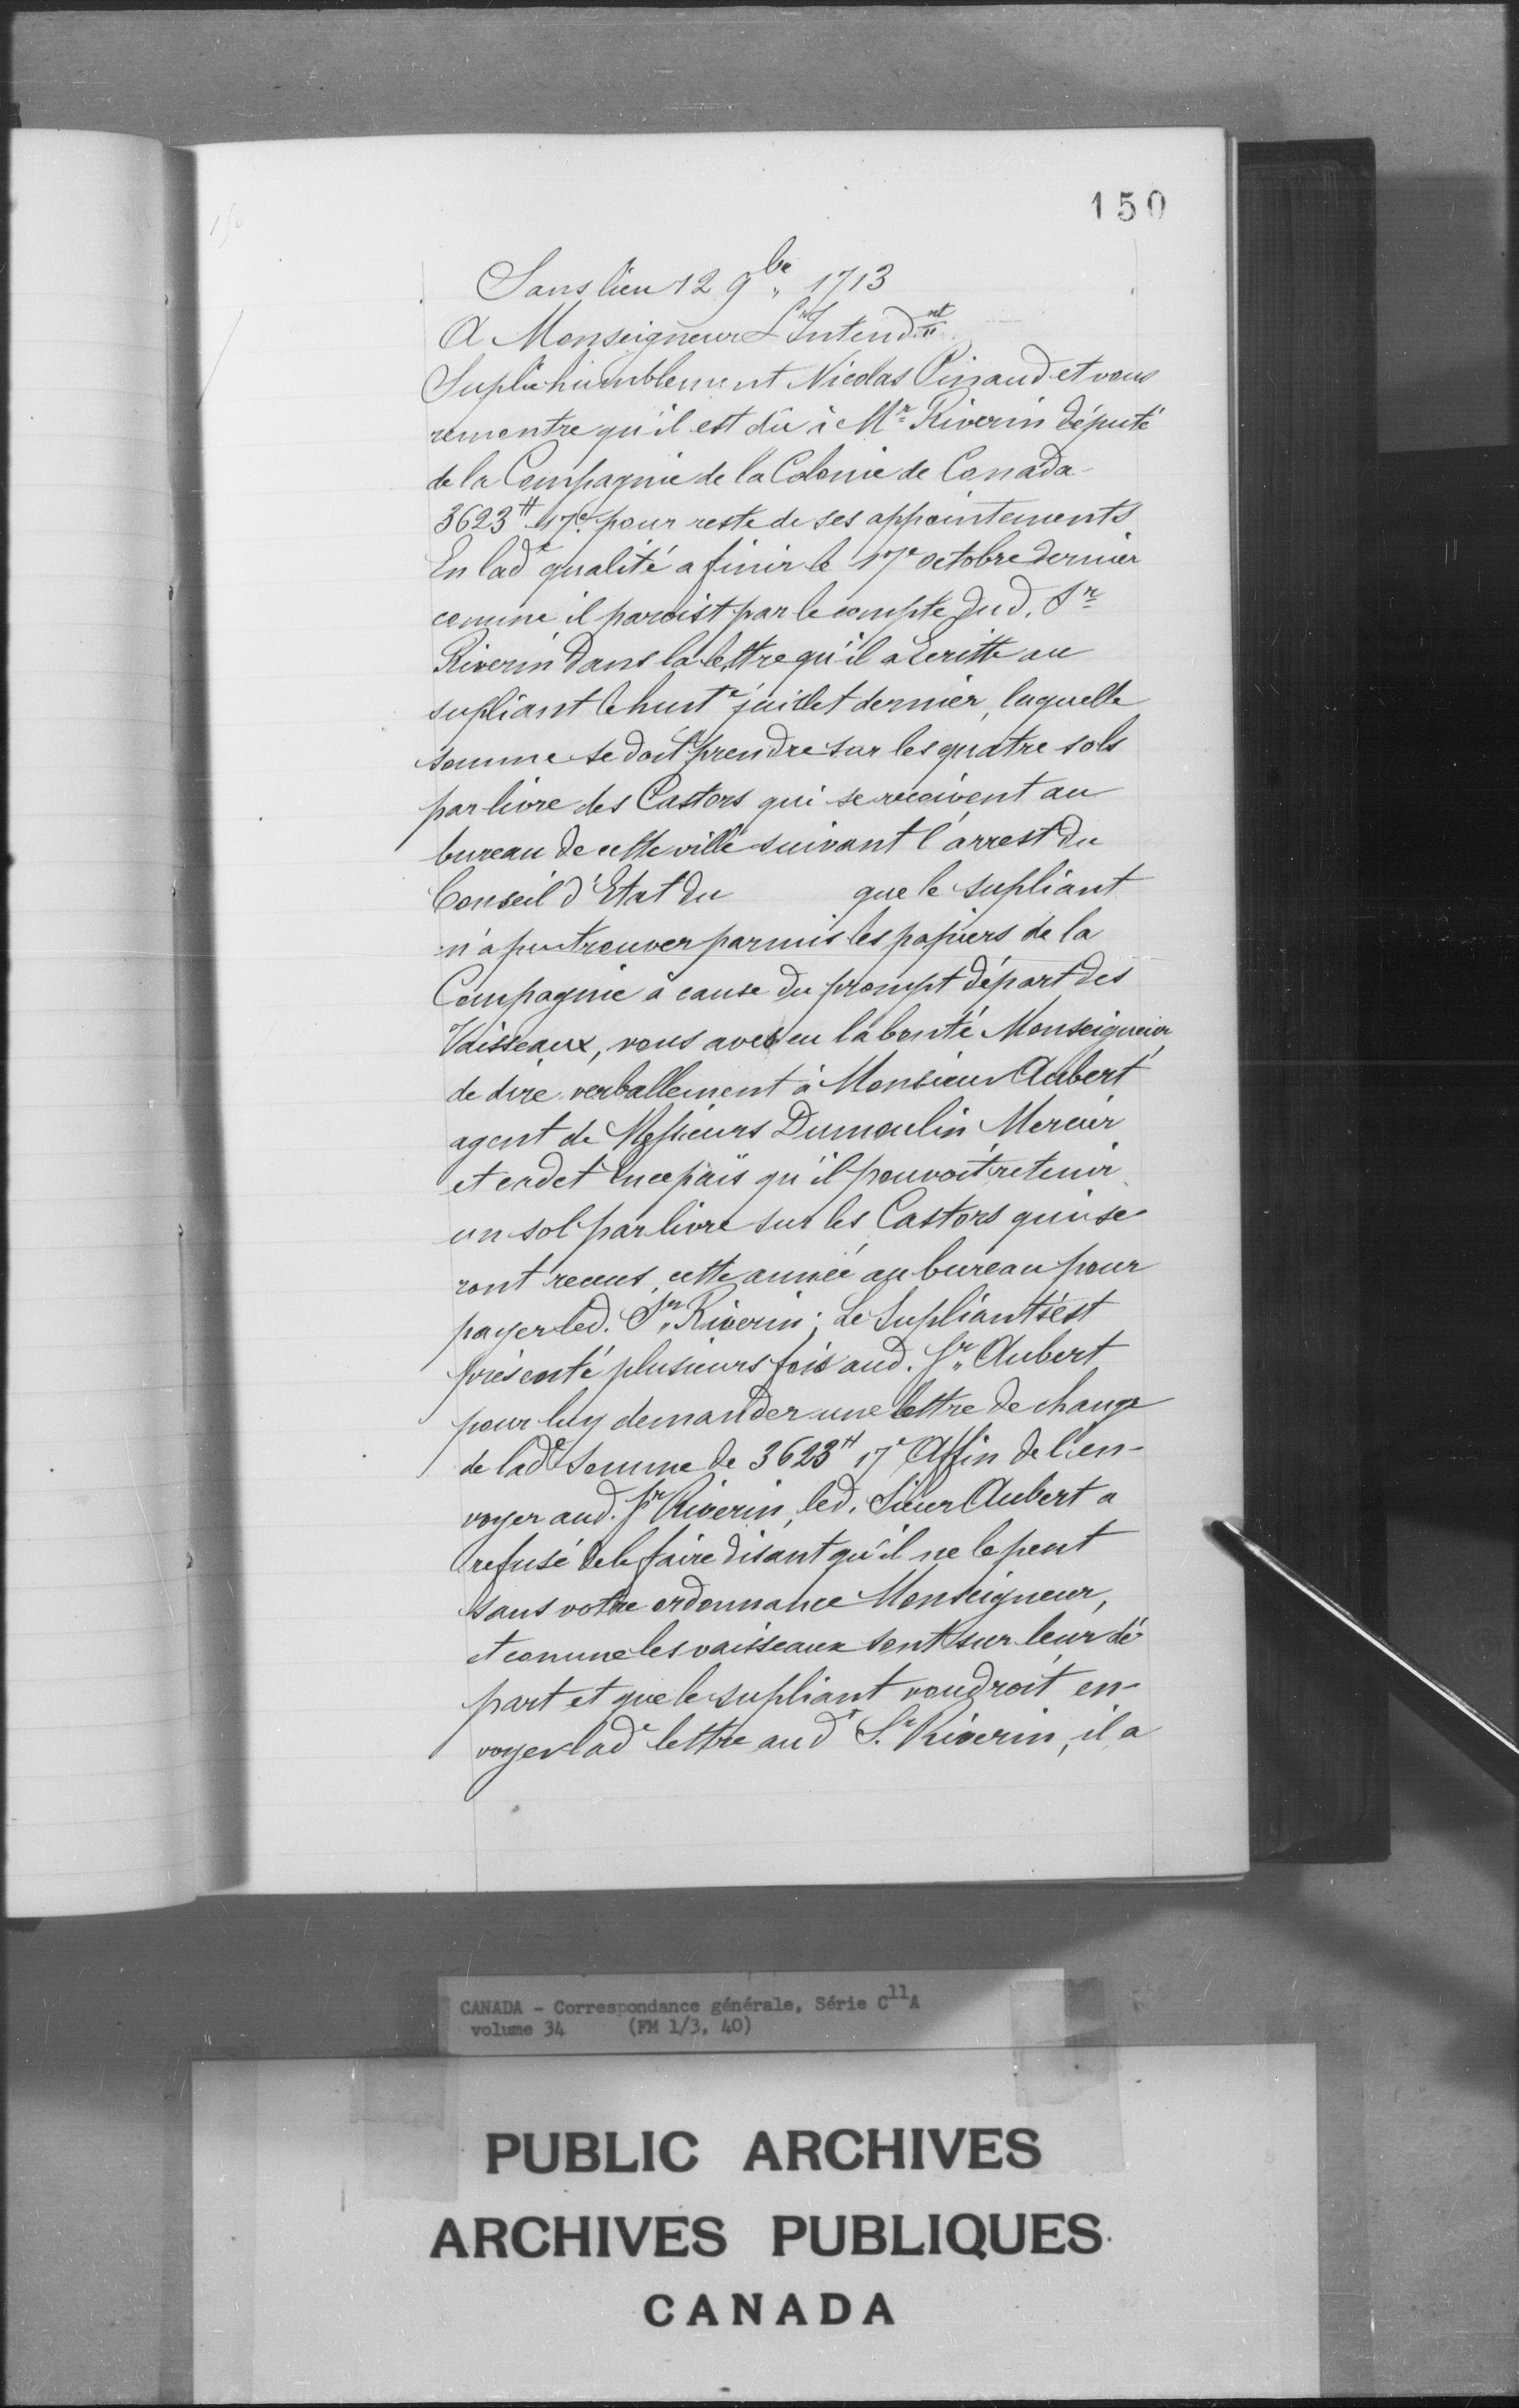 150
150
Sans lieu 12 9bre 1713
A Monseigneur L'Intendnt
Suplie humblement Nicolas Pinaud et vous
remontre qu'il est dû à Mr Riverin député
de la Compagnie de la Colonie de Canada
3623# 17e pour reste de ses appointements
En lade qualité a finir le 17e octobre dernier
comme il paroist par le compte dud. Sr
Riverin dans la lettre qu'il a Écritte au
supliant le huite juillet dernier, laquelle
somme se doit prendre sur les quatre sols
par livre des Castors qui se reçoivent au
bureau de cette ville suivant l'arrest du
Conseil d'Etat du que le supliant
n'a pu trouver parmis les papiers de la
Compagnie à cause du prompt départ des
Vaisseaux, vous aves eu la bonté Monseigneur
de dire verballement à Monsieur Aubert
agent de Messieurs Dumoulin Mercier
et cadet en ce païs qu'il pouvoit retenir
un sol par livre sur les Castors qui se
ront receus cette année au bureau pour
payer led. Sr Riverin; Le Supliant s'est
présenté plusieurs fois aud. Sr Aubert
pour luy demander une lettre de change
de lade somme de 3623# 17e Affin de l'en-
voyer aud. Sr Riverin, led. Sieur Aubert a
refusé de le faire disant qu'il ne le peut
sans votre ordonnance Monseigneur,
et comme les vaisseaux sont sur leur dé
part et que le supliant voudroit en-
voyer lade lettre audt Sr Riverin, il a
CANADA - Correspondance générale, Série C11A
volume 34 (FM 1/3, 40)
PUBLIC ARCHIVES
ARCHIVES PUBLIQUES
CANADA